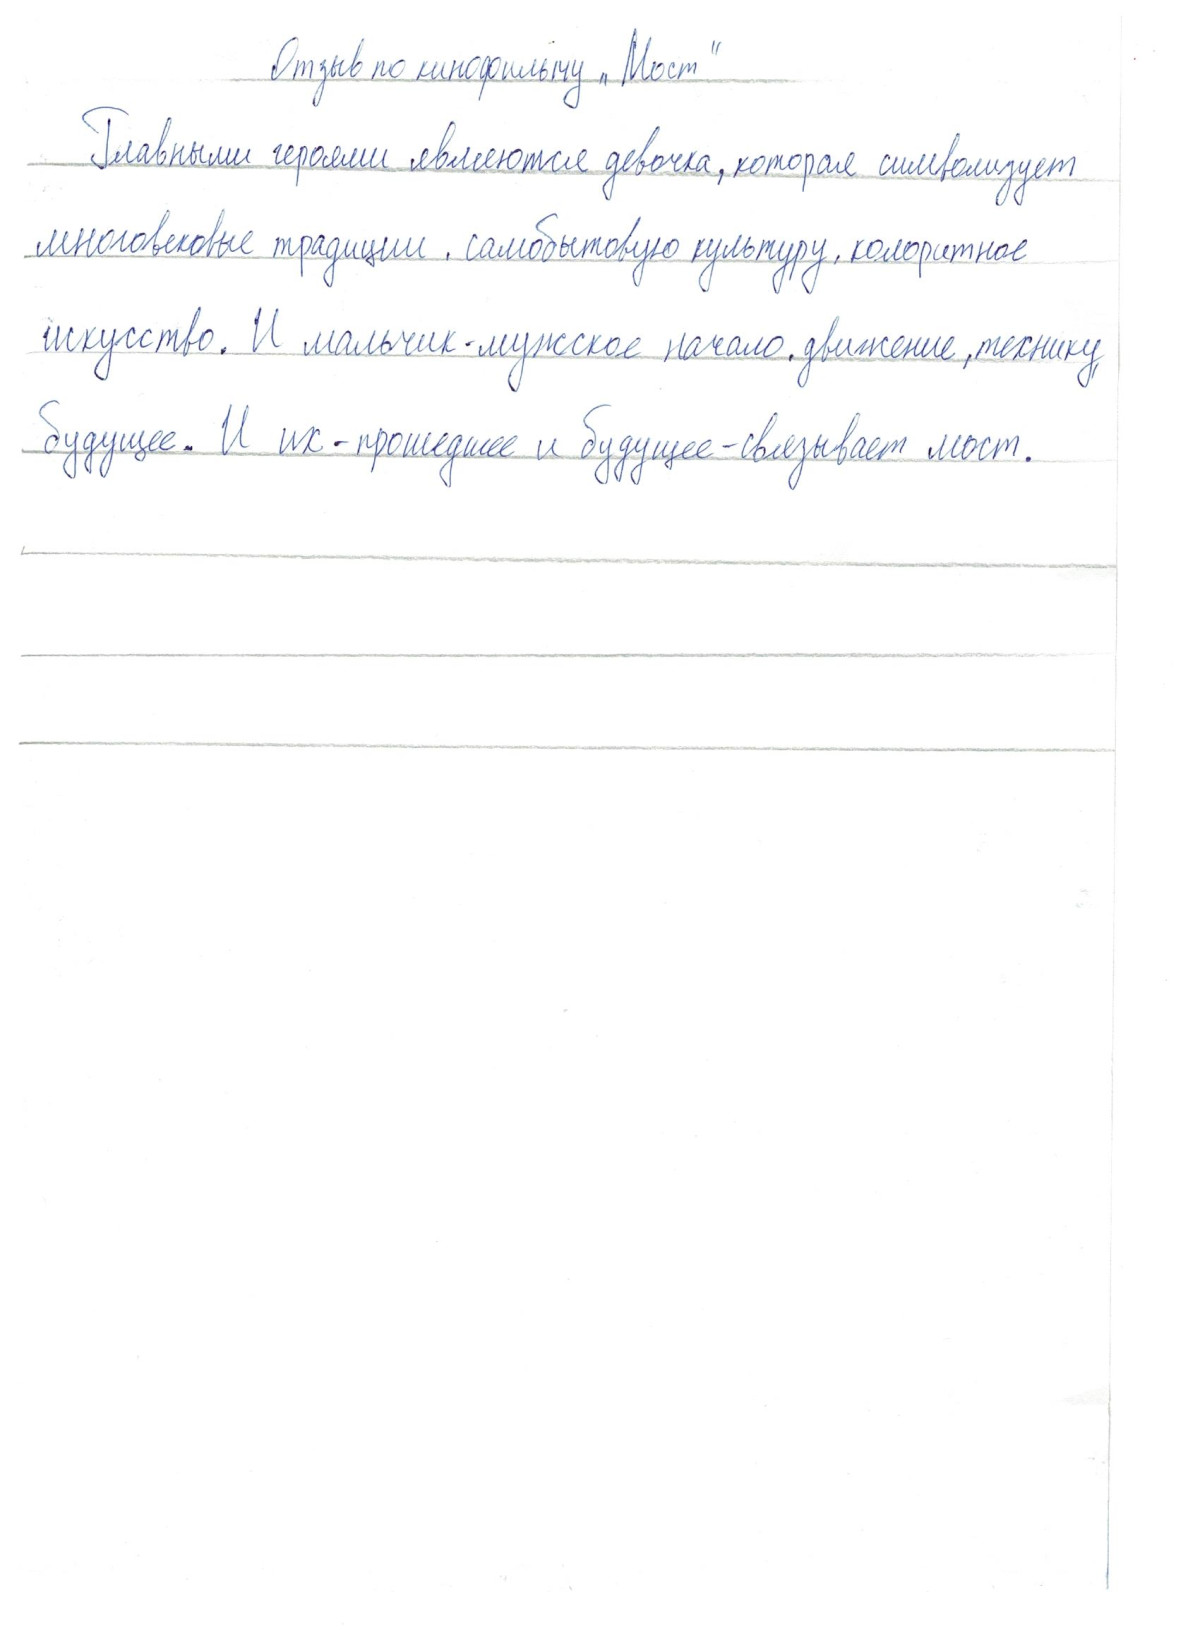 Отзыв по кинофильму „Мост“
Главными героями являются девочка, которая символизует
многовековые традиции, самобытовую культуру, колоритное
искусство. И мальчик-мужское начало, движение, технику,
будущее. И их-прошедшее и будущее-связывает мост.